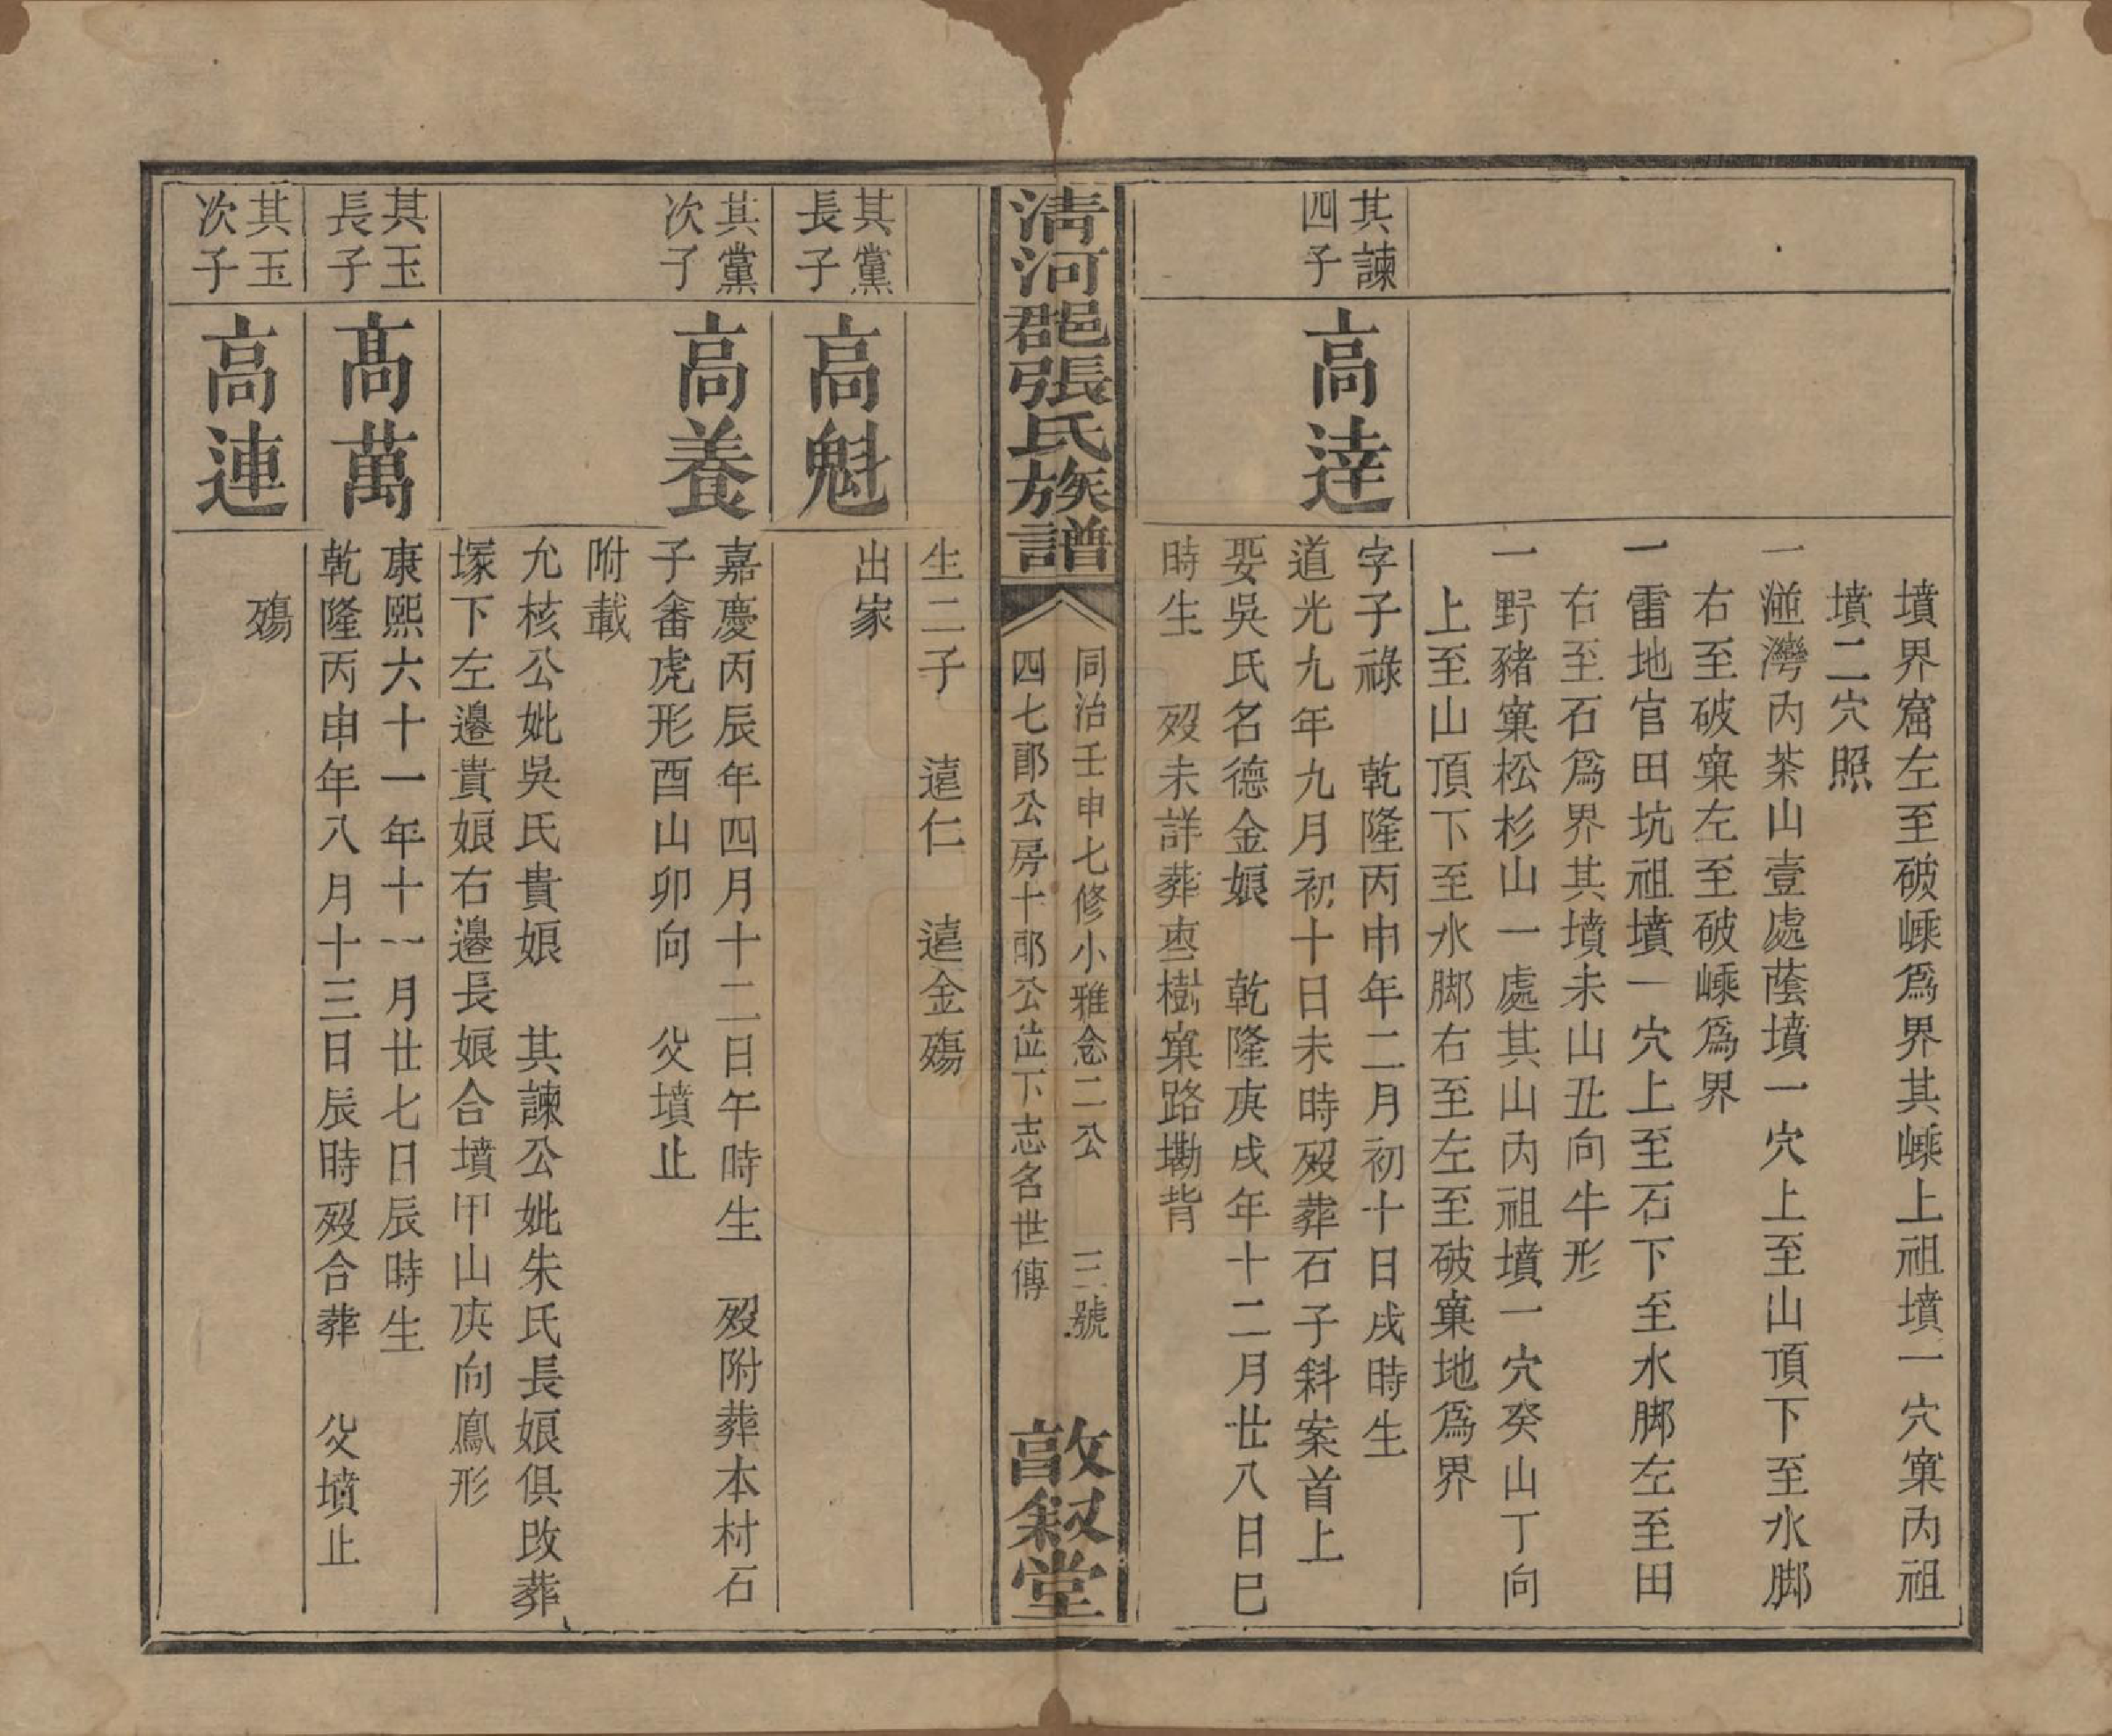 墳界窟左至破嵊爲界其嵊上祖墳一穴窠內祖
墳二穴照
一湴灣內茶山壹處蔭墳一穴上至山頂下至水脚
右至破窠左至破嵊爲界
一雷地官田坑祖墳一穴上至石下至水脚左至田
右至石爲界其墳未山丑向牛形
一野豬窠松杉山一處其山內祖墳一穴癸山丁向
上至山頂下至水脚右至左至破窠地爲界
其諫
四子
高達
字子祿 乾隆丙申年二月初十日戌時生
道光九年九月初十日未時歿葬石子斜案首上
娶吳氏名德金娘 乾隆庚戌年十二月廿八日巳
時生 歿未詳葬枣樹窠路墈背
清河郡張氏族譜
同治壬申七修小雅念二公 三號
四七郎公房十郎公位下志名世傳
敦敘堂
生二子 遠仁 遠金殤
其黨
長子
高魁
出家
其黨
次子
高養
嘉慶丙辰年四月十二日午時生 歿附葬本村石
子畬虎形酉山卯向 父墳止
附載
允核公妣吳氏貴娘 其諫公妣朱氏長娘俱改葬
塚下左邊貴娘右邊長娘合墳甲山庚向鳳形
其玉
長子
高萬
康熙六十一年十一月廿七日辰時生
乾隆丙申年八月十三日辰時歿合葬 父墳止
其玉
次子
高連
殤